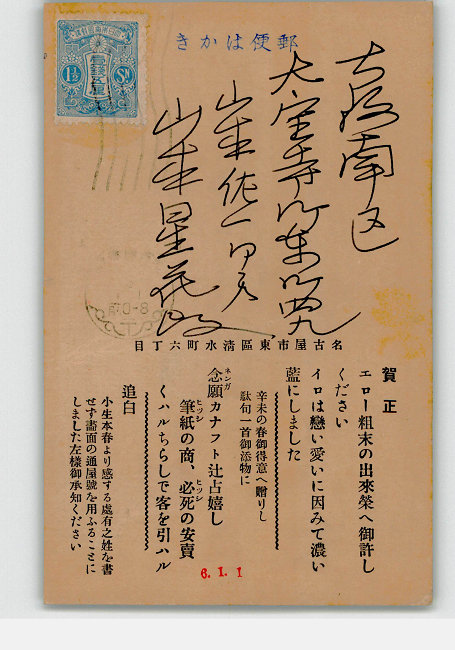 郵便はかき
壹錢五厘
1½ Sn
大阪南区
大宝寺町東
山本佐一
山本星花
名古屋市東區淸水町六丁目
賀正
エロー粗末の出來榮へ御許し
ください
イロは戀い愛いに因みて濃い
藍にしました
辛未の春御得意へ贈りし
駄句一首御添物に
念願カナフト辻占嬉し
ネンガ
筆紙の商、必死の安賣
ヒツシ
ヒツシ
くハルちらしで客を引ハル
追白
小生本春より感する處有之姓を書
せず畵面の通屋號を用ふることに
しました左樣御承知ください
6.1.1